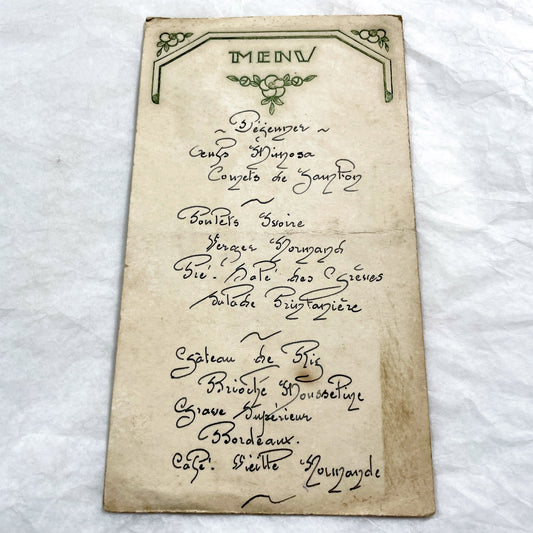 MENU
~ Déjeuner ~
Oeufs Mimosa
Cornets de Jambon
Poulets Ivoire
Verger Normand
Pré-Salé des Grèves
Salade Printanière
Gâteau de Riz
Brioche Mousseline
Grave Supérieur
Bordeaux.
Café. Vieille Normande